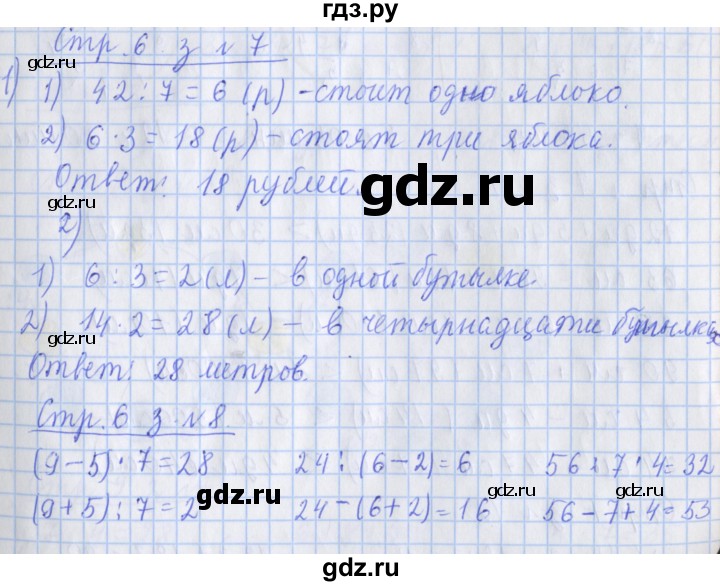 гдз.ру
Стр. 6 з N 7
1)
1) 42 : 7 = 6 (р) - стоит одно яблоко.
2) 6 · 3 = 18 (р) - стоят три яблока.
Ответ: 18 рублей.
2)
1) 6 : 3 = 2 (л) - в одной бутылке.
2) 14 · 2 = 28 (л) - в четырнадцати бутылках
Ответ: 28 метров.
Стр. 6 з. N 8.
(9 - 5) · 7 = 28 24 : (6 - 2) = 6 56 : 7 · 4 = 32
(9 + 5) : 7 = 2 24 - (6 + 2) = 16 56 - 7 + 4 = 53
gdz.ru
gdz.ru
gdz.ru
gdz.ru
gdz.ru
gdz.ru
gdz.ru
gdz.ru
gdz.ru
gdz.ru
gdz.ru